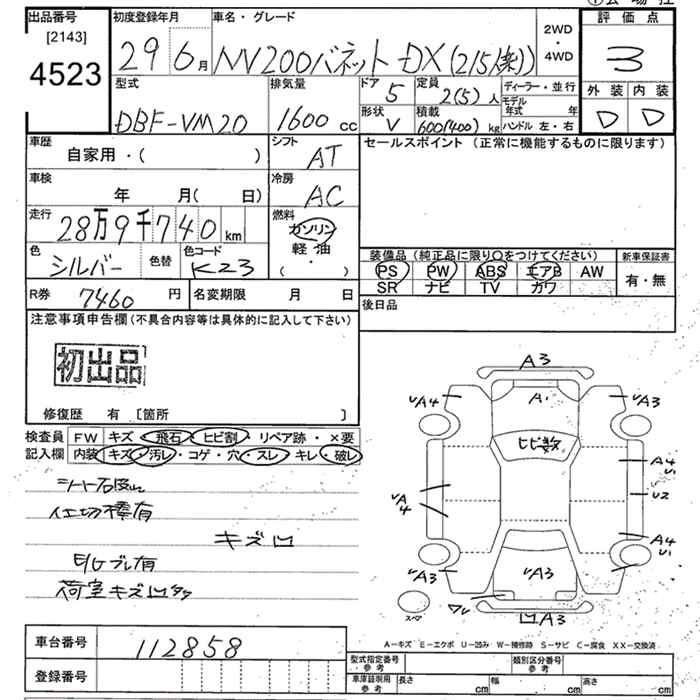 出品番号 初度登録年月 車名・グレード 2WD・4WD 評価点
[2143]
4523
29 6月 NV200バネット DX(2/5人乗) 3
型式 排気量 ドア 5 定員 2(5)人 ディーラー・並行 外装 内装
DBF-VM20 1600cc 形状 V 積載 600(400)kg モデル年式 年 D D
ハンドル 左・右
車歴 シフト セールスポイント (正常に機能するものに限ります)
自家用・( ) AT
車検 冷房
年 月( 日) AC
走行 燃料
28万9千740km ガソリン
軽・油
・( )
色 シルバー 色替 色コード K23
装備品 (純正品に限り○をつけてください) 新車保証書
PS PW ABS エアB AW 有・無
SR ナビ TV ガワ
R券 7460円 名変期限 月 日 後日品
注意事項申告欄 (不具合内容等は具体的に記入して下さい)
初出品
修復歴 有 [箇所 ]
検査員 FW キズ・飛石・ヒビ割・リペア跡・×要
記入欄 内装 キズ・汚レ・コゲ・穴・スレ・キレ・破レ
仕切棒有
キズ凹
E/Gブレ有
荷室キズ凹多
A3
A1
A4
A3
ヒビ数
A4
U1
U2
A4
A4
U1
A3
A3
ワレ
凹A3
スペア
A-キズ E-エクボ U-凹み W-補修跡 S-サビ C-腐食 XX-交換済
車台番号 112858
型式指定番号参考 類別区分番号参考
登録番号
車庫証明用参考 長さ cm 幅 cm 高さ cm